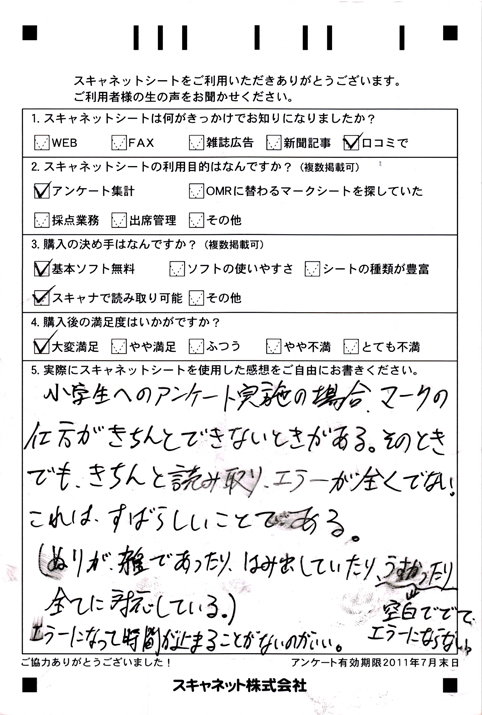 スキャネットシートをご利用いただきありがとうございます。
ご利用者様の生の声をお聞かせください。
1. スキャネットシートは何がきっかけでお知りになりましたか？
WEB FAX 雑誌広告 新聞記事 口コミで
2. スキャネットシートの利用目的はなんですか？（複数掲載可）
アンケート集計 OMRに替わるマークシートを探していた
採点業務 出席管理 その他
3. 購入の決め手はなんですか？（複数掲載可）
基本ソフト無料 ソフトの使いやすさ シートの種類が豊富
スキャナで読み取り可能 その他
4. 購入後の満足度はいかがですか？
大変満足 やや満足 ふつう やや不満 とても不満
5. 実際にスキャネットシートを使用した感想をご自由にお書きください。
小学生へのアンケート実施の場合、マークの
仕方がきちんとできないときがある。そのとき
でも、きちんと読み取り、エラーが全くでない!
これは、すばらしいことである。
(ぬりが、雑であったり、はみ出していたり、うすかったり
全てに対応している。)
空白でてて
エラーになって時間が止まることがないのがいい。
エラーにならない。
ご協力ありがとうございました！ アンケート有効期限2011年7月末日
スキャネット株式会社